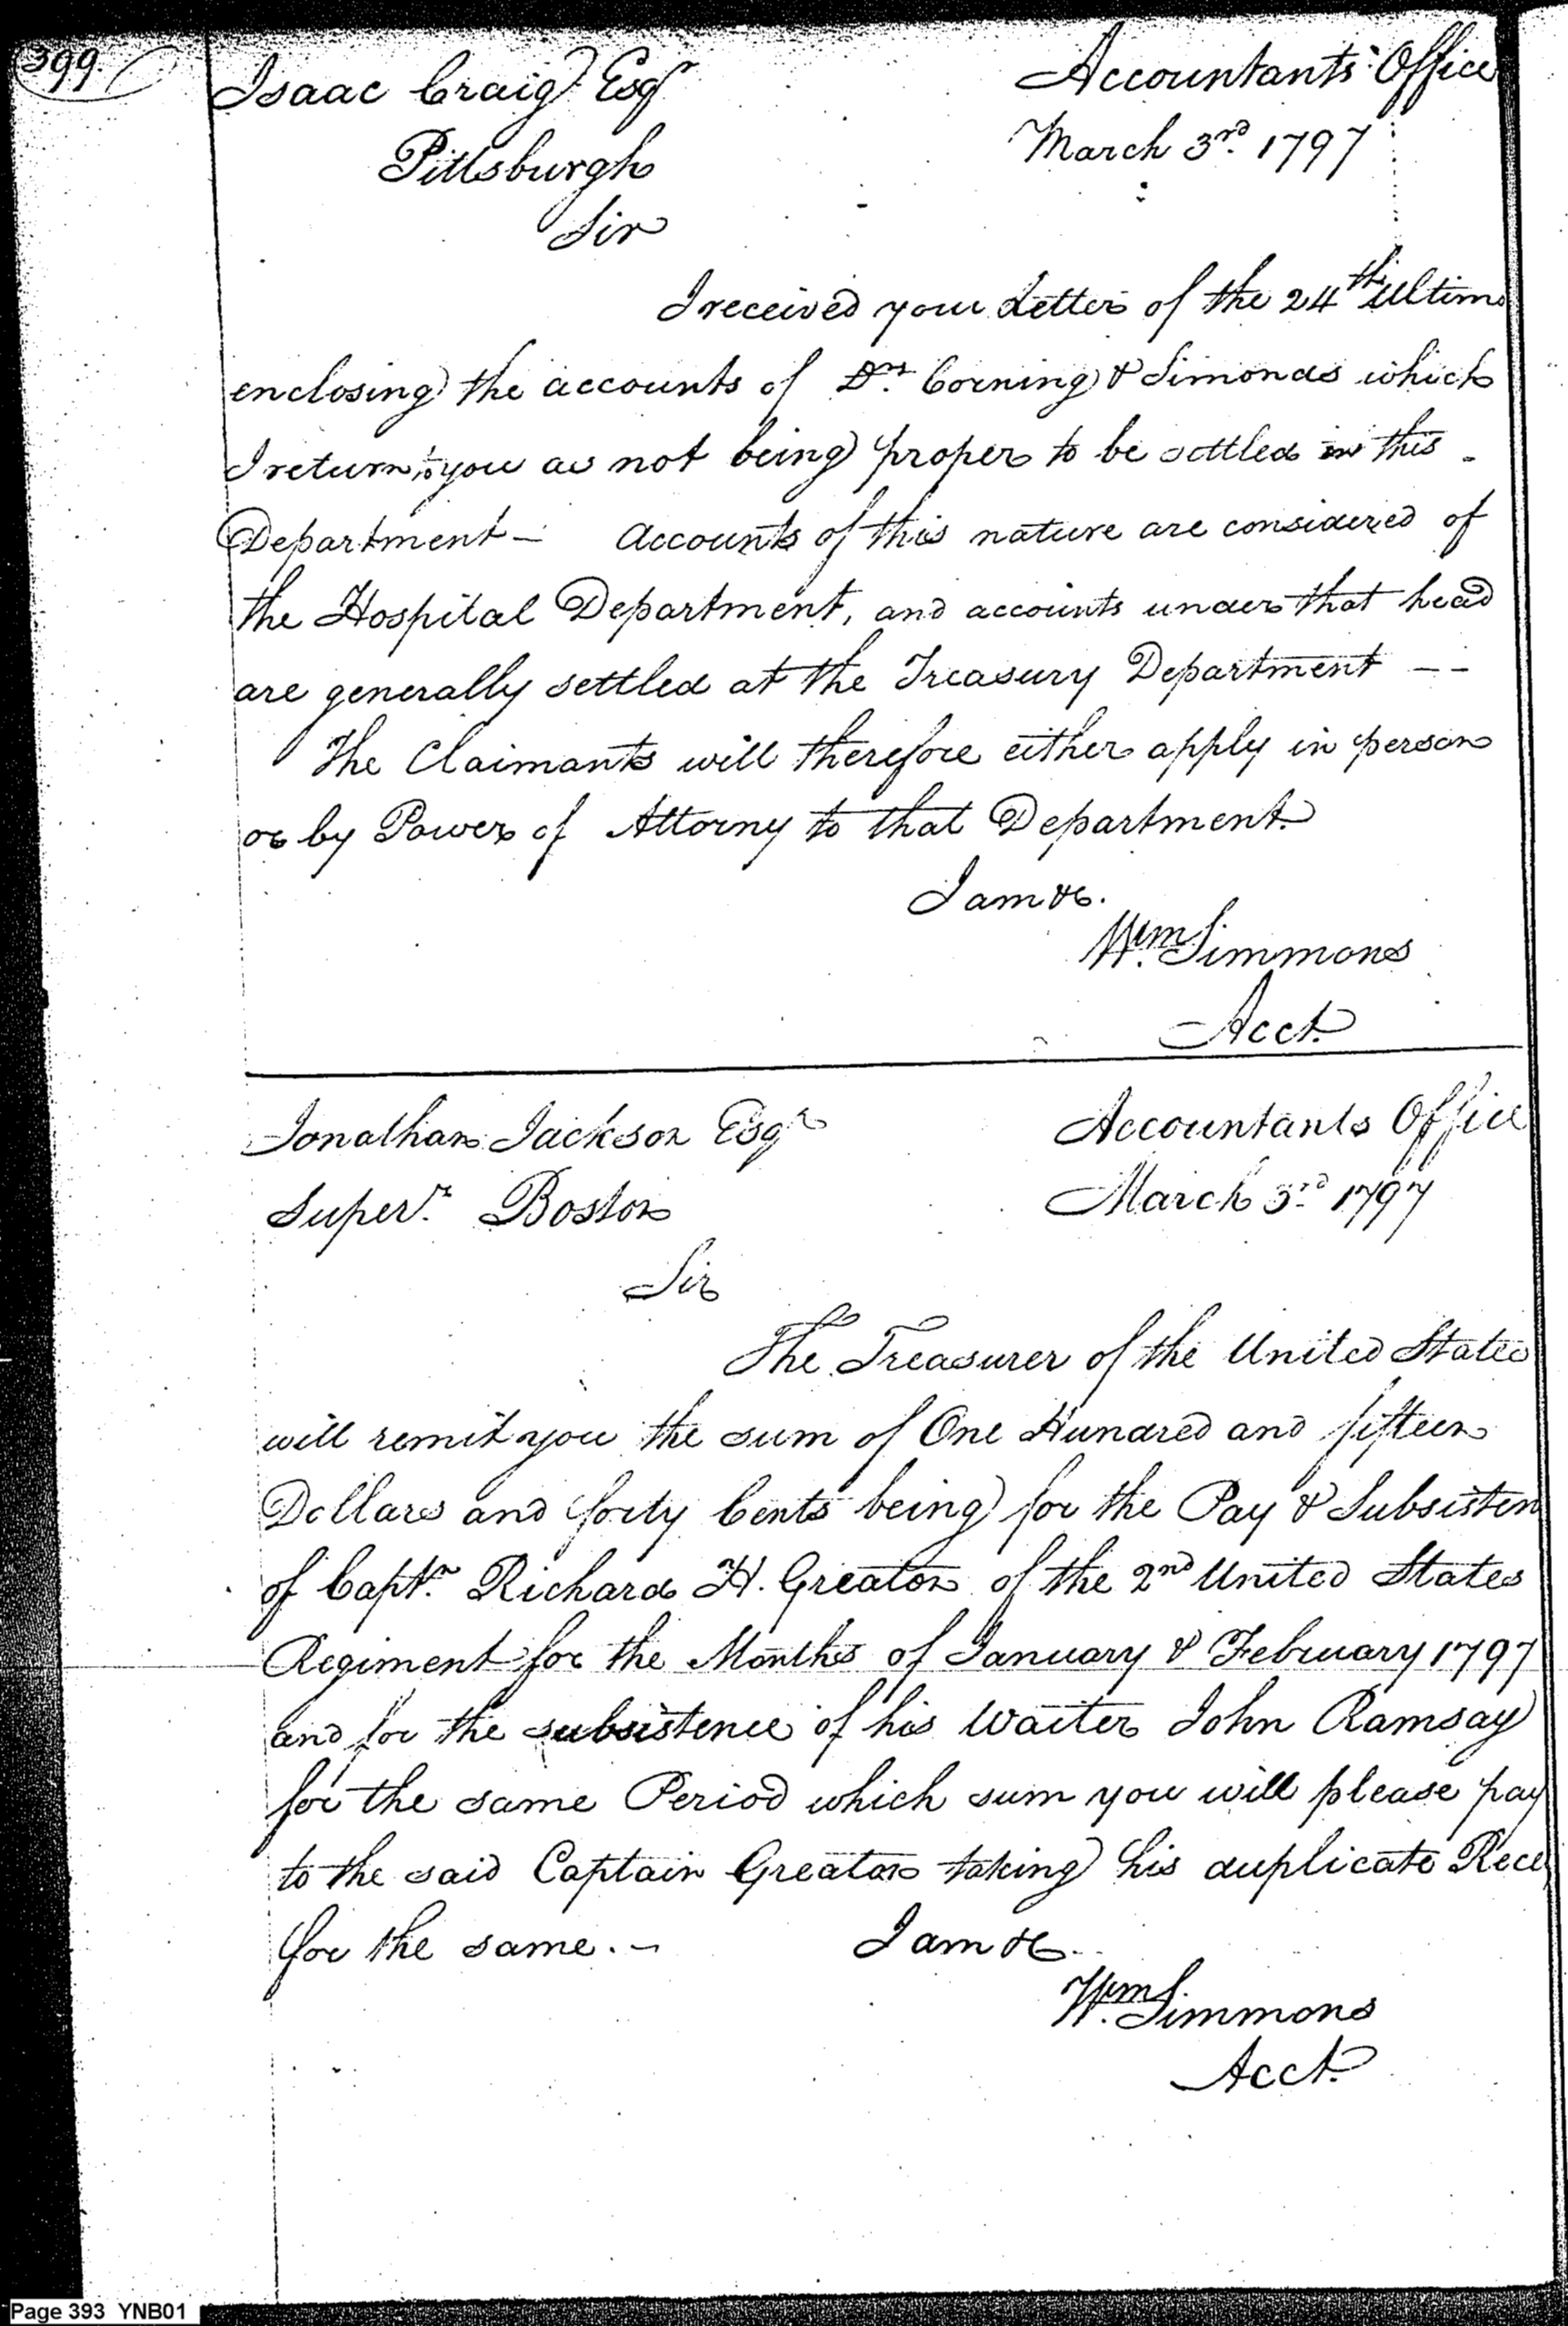 399.
Isaac Craig Esqr
Accountants Office
Pittsburgh
March 3rd. 1797
Sir
I received your Letter of the 24th Ultimo
enclosing the accounts of Drs. Corning & Simonds which
I return to you as not being proper to be settled in this
Department — Accounts of this nature are considered of
the Hospital Department, and accounts under that head
are generally settled at the Treasury Department — —
The Claimants will therefore either apply in person
or by Power of Attorny to that Department.
I am &c.
Wm. Simmons
Acct.
Jonathan Jackson Esqr
Accountants Office
Superr. Boston
March 3rd 1797
Sir
The Treasurer of the United States
will remit you the sum of One Hundred and fifteen
Dollars and forty Cents being for the Pay & Subsisten
of Captn. Richard H. Greaton of the 2nd United States
Regiment for the Months of January & February 1797
and for the subsistence of his Waiter John Ramsay
for the same Period which sum you will please pay
to the said Captain Greaton taking his duplicate Rece
for the same. — I am &c.
Wm. Simmons
Acct.
Page 393 YNB01